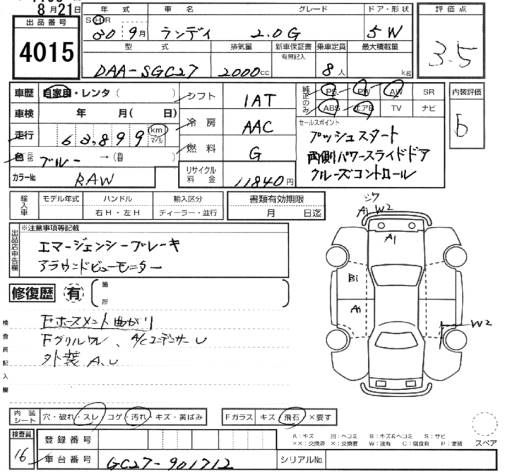 8月21日
出品番号
4015
年式 車名 グレード ドア・形状
S H R
30 9月 ランディ 2.0G 5W
型式 排気量 新車保証書 有無記入 乗車定員 最大積載量
DAA-SGC27 2000cc 8人 kg
評価点
3.5
車歴 自家用・レンタ( )
車検 年 月( 日)
走行 63,899 km マイル
色 ブルー → 色替
カラーNo RAW
シフト 1AT
冷房 AAC
燃料 G
リサイクル料金 11840円
純正のみ PS PW AW SR
ABS エアB TV ナビ
内装評価
セールスポイント
プッシュスタート
両側パワースライドドア
クルーズコントロール
輸入車 モデル年式 ハンドル 輸入区分 書類有効期限
右H・左H ディーラー・並行 月 日迄
出品店申告欄 ※注意事項等記載
エマージェンシーブレーキ
アラウンドビューモニター
修復歴 有 箇所
検査員記入欄
Fホースメント曲がり
Fグリルワレ、A/CコンデンサーU
外装A.U
A1 W2
A1
B1
A1
W2
内装シート 穴・破れ・スレ コゲ 汚れ・キズ・黄ばみ Fガラス キズ 飛石 ×要す
検査員 16
登録番号
車台番号 GC27-901712 シリアルNo
A:キズ U:ヘコミ B:キズ&ヘコミ S:サビ
XX:交換済 X:交換要 W:波有 C:腐食有 P:塗装
スペア